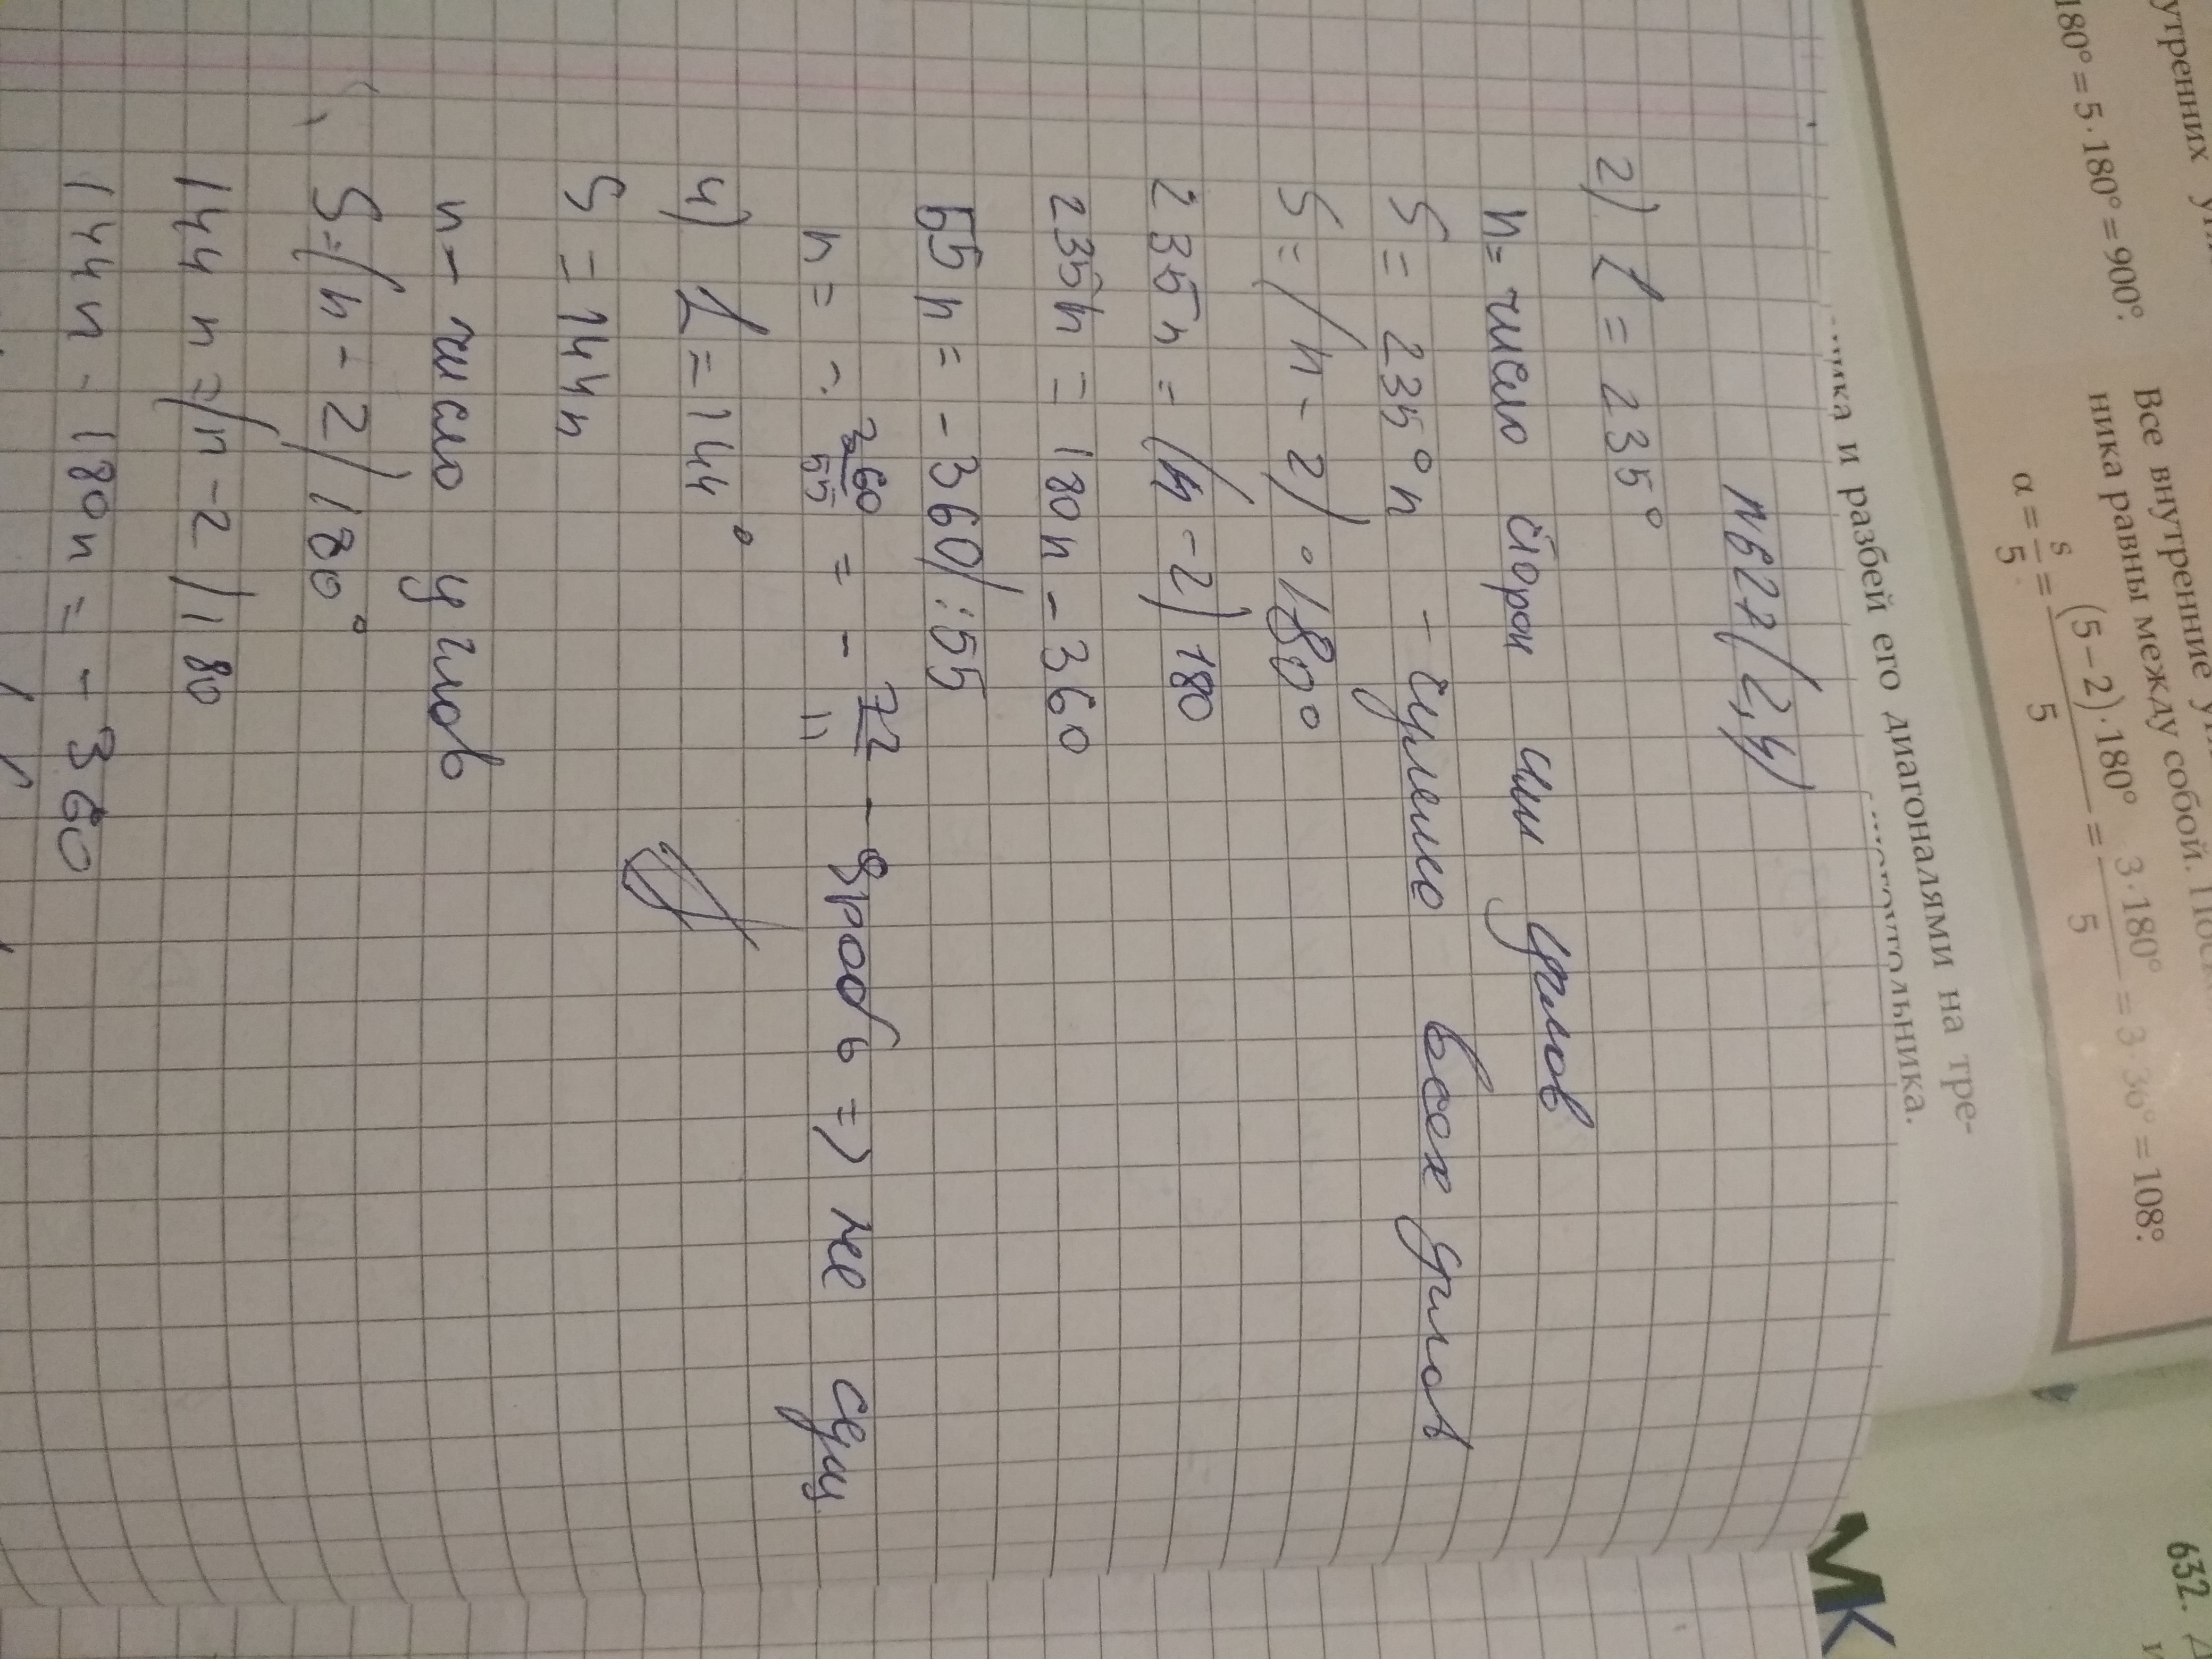 утренних
180° = 5·180° = 900°.
Все внутренние
ника равны между собой.
α = s/5 = (5−2)·180°/5 = 3·180°/5 = 3 36° = 108°.
и разбей его диагоналями на тре-
632.
МК
№627(2,4)
2) L = 235°
n = число сторон или углов
S = 235°n - сумме всех углов
S = (n - 2) · 180°
235n = (n - 2) 180
235n = 180n - 360
55n = -360/:55
n = -360/55 = -72/11 - дробь => не сущ
4) L = 144°
S = 144n
n - число углов
S = (n - 2) 180°
144n = (n - 2) 180
144n - 180n = - 360